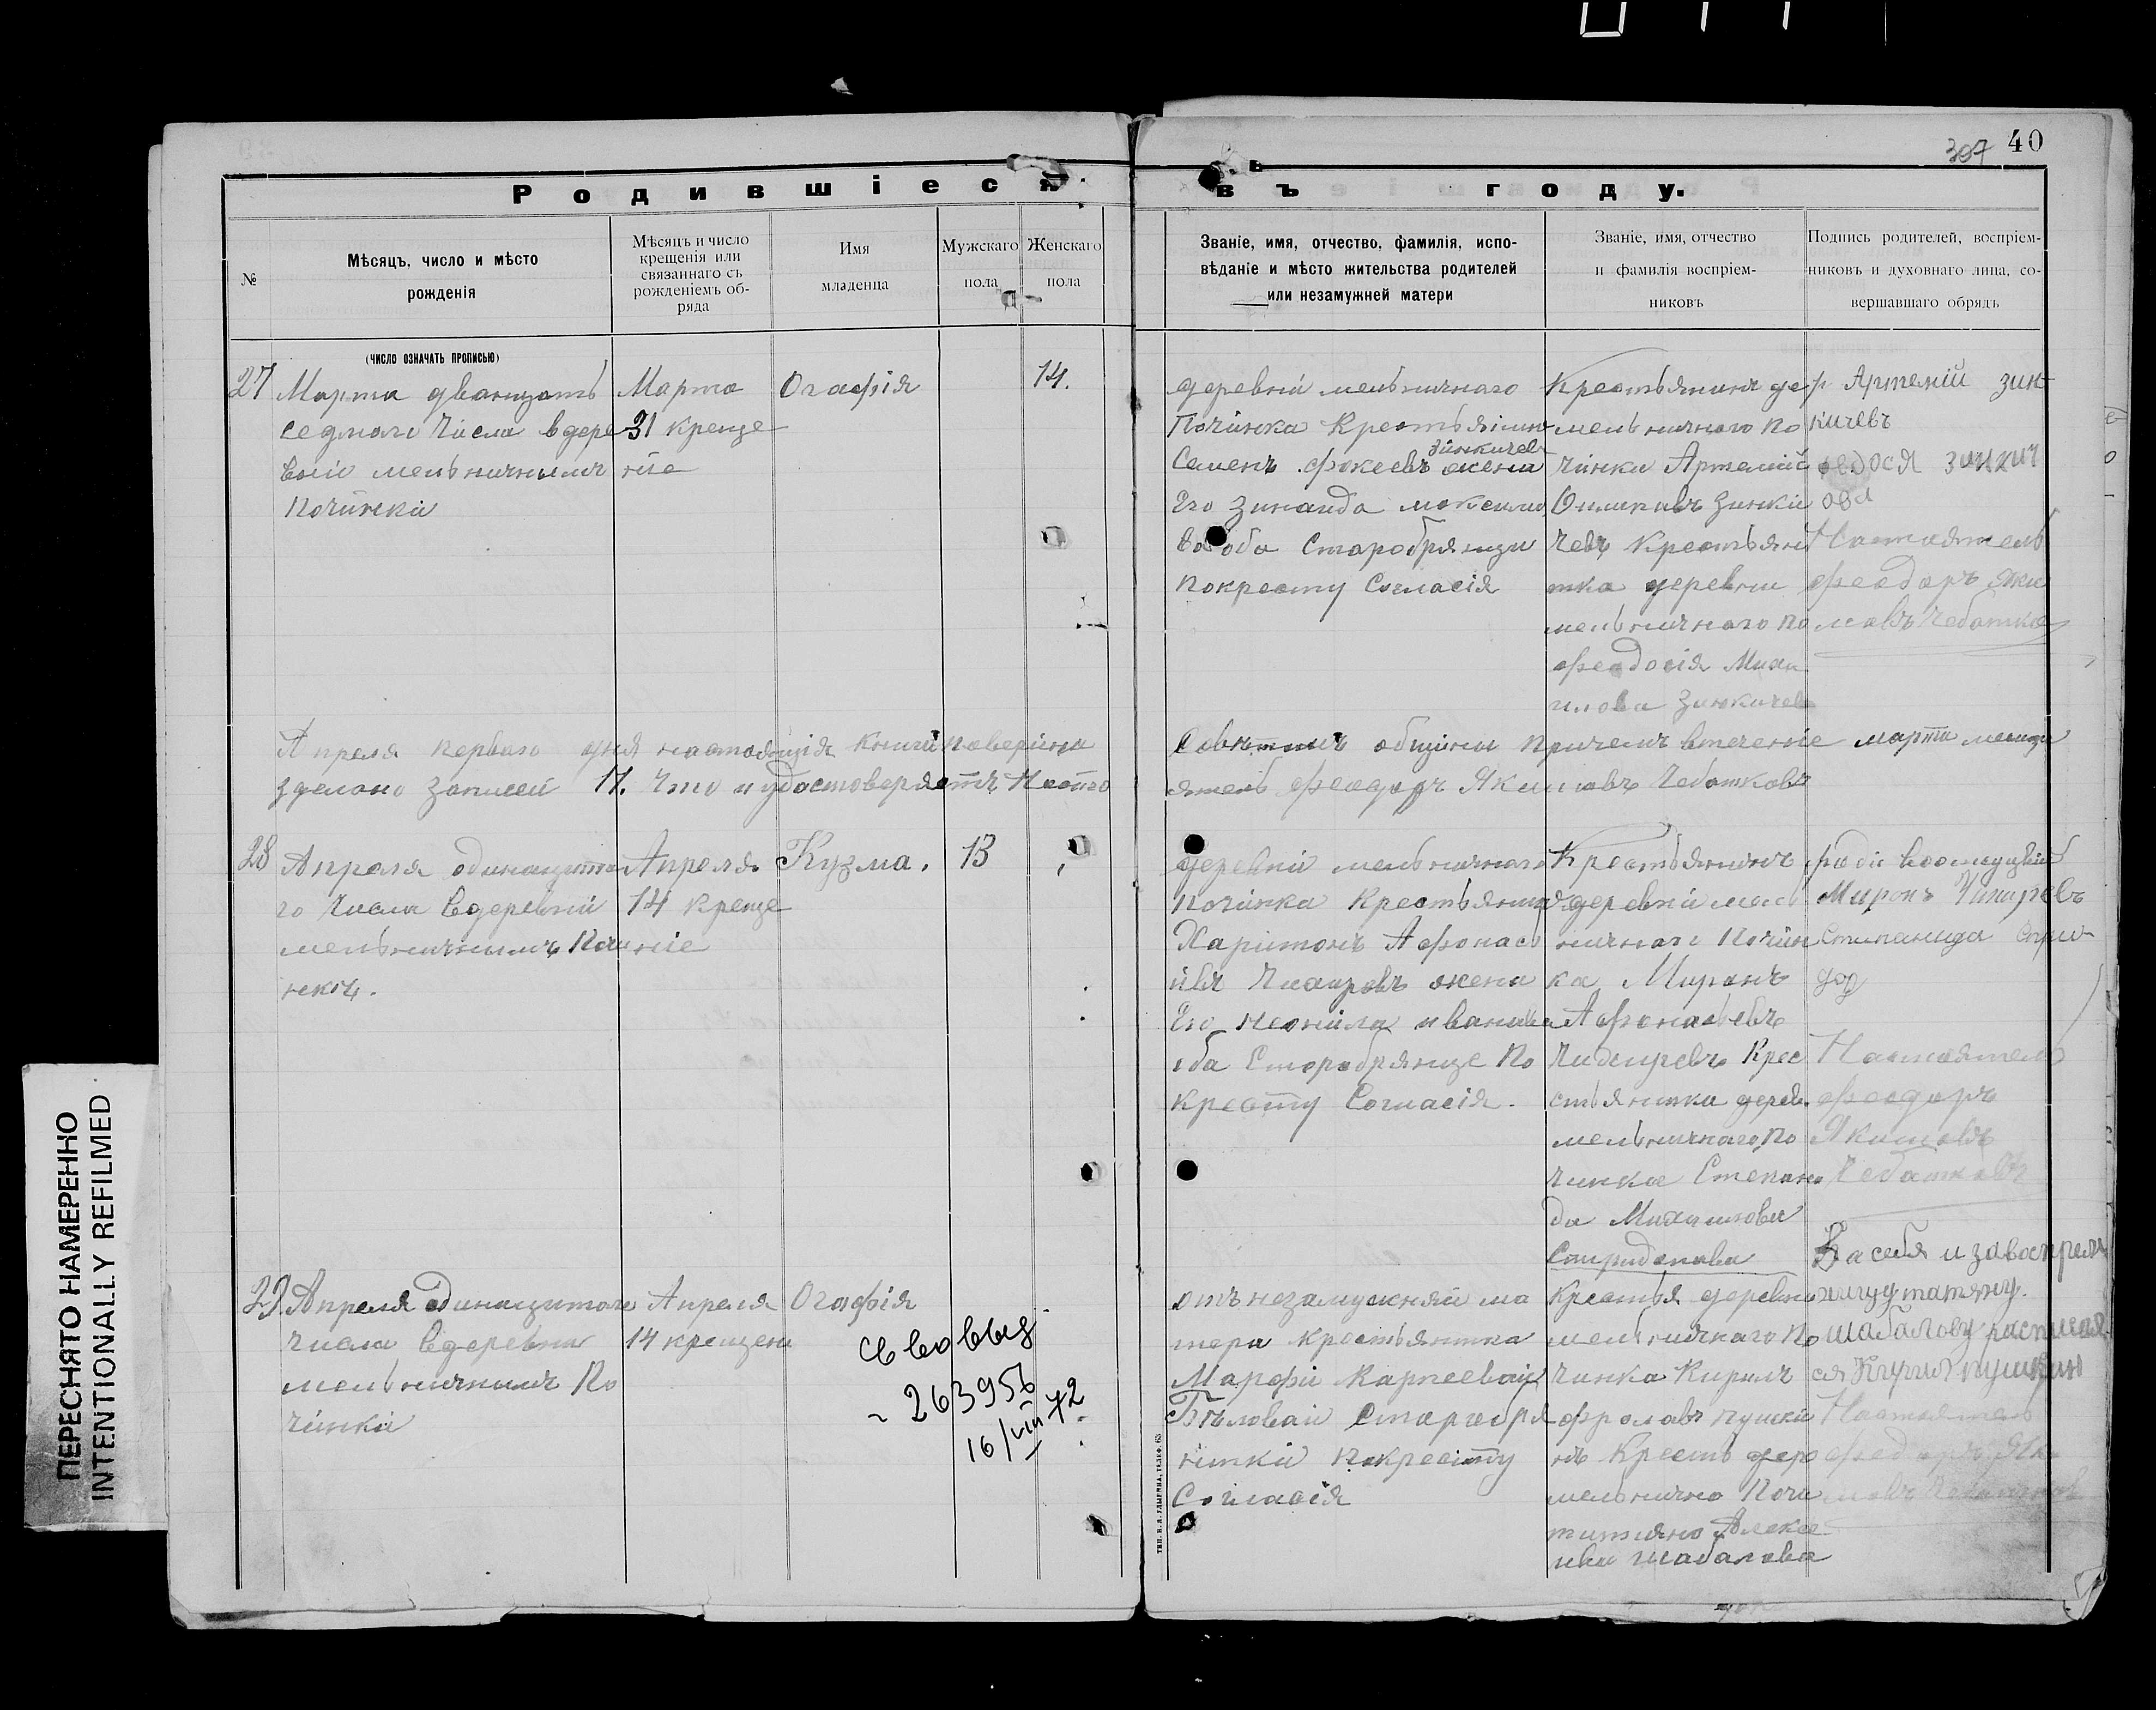 307 40
Родившіеся въ году.
№
Мѣсяцъ, число и мѣсто
рожденія
(число означать прописью)
Мѣсяцъ и число
крещенія или
связаннаго съ
рожденіемъ об-
ряда
Имя
младенца
Мужскаго
пола
Женскаго
пола
Званіе, имя, отчество, фамилія, испо-
вѣданіе и мѣсто жительства родителей
или незамужней матери
Званіе, имя, отчество
и фамилія воспріем-
никовъ
Подпись родителей, воспріем-
никовъ и духовнаго лица, со-
вершавшаго обрядъ
27
Марта дванцать
седмаго Числа вдере
вни мельничнымъ
Починки
Марта
31 креще
ніе
Огафія
14.
деревни мельничнаго
Починка Крестьянин
Зинкичев
Семенъ фокеевъ жена
Его Зинаида максимо
ва оба Старобрянцы
Покресту Согласія
Крестьянинъ де
мельничного по
чинки Артемий
Зинки
чевъ Крестьян
тка деревни
мельничнаго по
феодосія Миха
илова Зинкичев
Артемій зин
кичевъ
федося зинкич
ова
Настаятель
феодоръ Яки
мовъ Чеботков
Апреля первого дня настоящія книги поверины
Советомъ общины причемъ втечение марта месяца
зделано записей 11. Что и удостоверяетъ Насто
ятель феодоръ Якимовъ Чеботковъ
28
Апреля одинацита
го Числа вдеревни
мельничнымъ Почи
нкоч.
Апреля
14 креще
ніе
Кузма.
13
деревни мельничнаго
Починка Крестьянин
Харитонъ Афонась
ивъ жена
Его Неонила иванова
оба Старобрянце По
кресту Согласія.
Крестьянинъ
деревни мель
ничнаго Почин
ка Миронъ
Афонасьевъ
Крес
стьянинка дерев.
мельничнаго По
чинка Степани
да Михаилова
Спиридонова
Миронъ
Стипанида Спри
дор
Настаятель
феодоръ
Якимовъ
Чеботковъ
29.
Апреля одинацитого
Числа вдеревни
мельничнымъ По
чинки
Апреля
14 крещени
Огафія
Св во выд
263956
16/VIII 42
отъ незамужняй ма
тери крестьянтка
Марфи Карпеевай
Бѣловаи Старообря
нтки Покресту
Согласія
Крестья деревни
мельничнаго По
чинка Кирилъ
фроловъ пушки
нъ Кресть дере
мельнично Почи
титяна Алексе
ива шабалова
За себя и завоспреем
ницу татяну.
шабалову расписал
ся Кирил пушкин
Настаятель
федоръ Яки
мовъ Чеботков
ТИП. Н. А.
ПЕРЕСНЯТО НАМЕРЕННО
INTENTIONALLY REFILMED